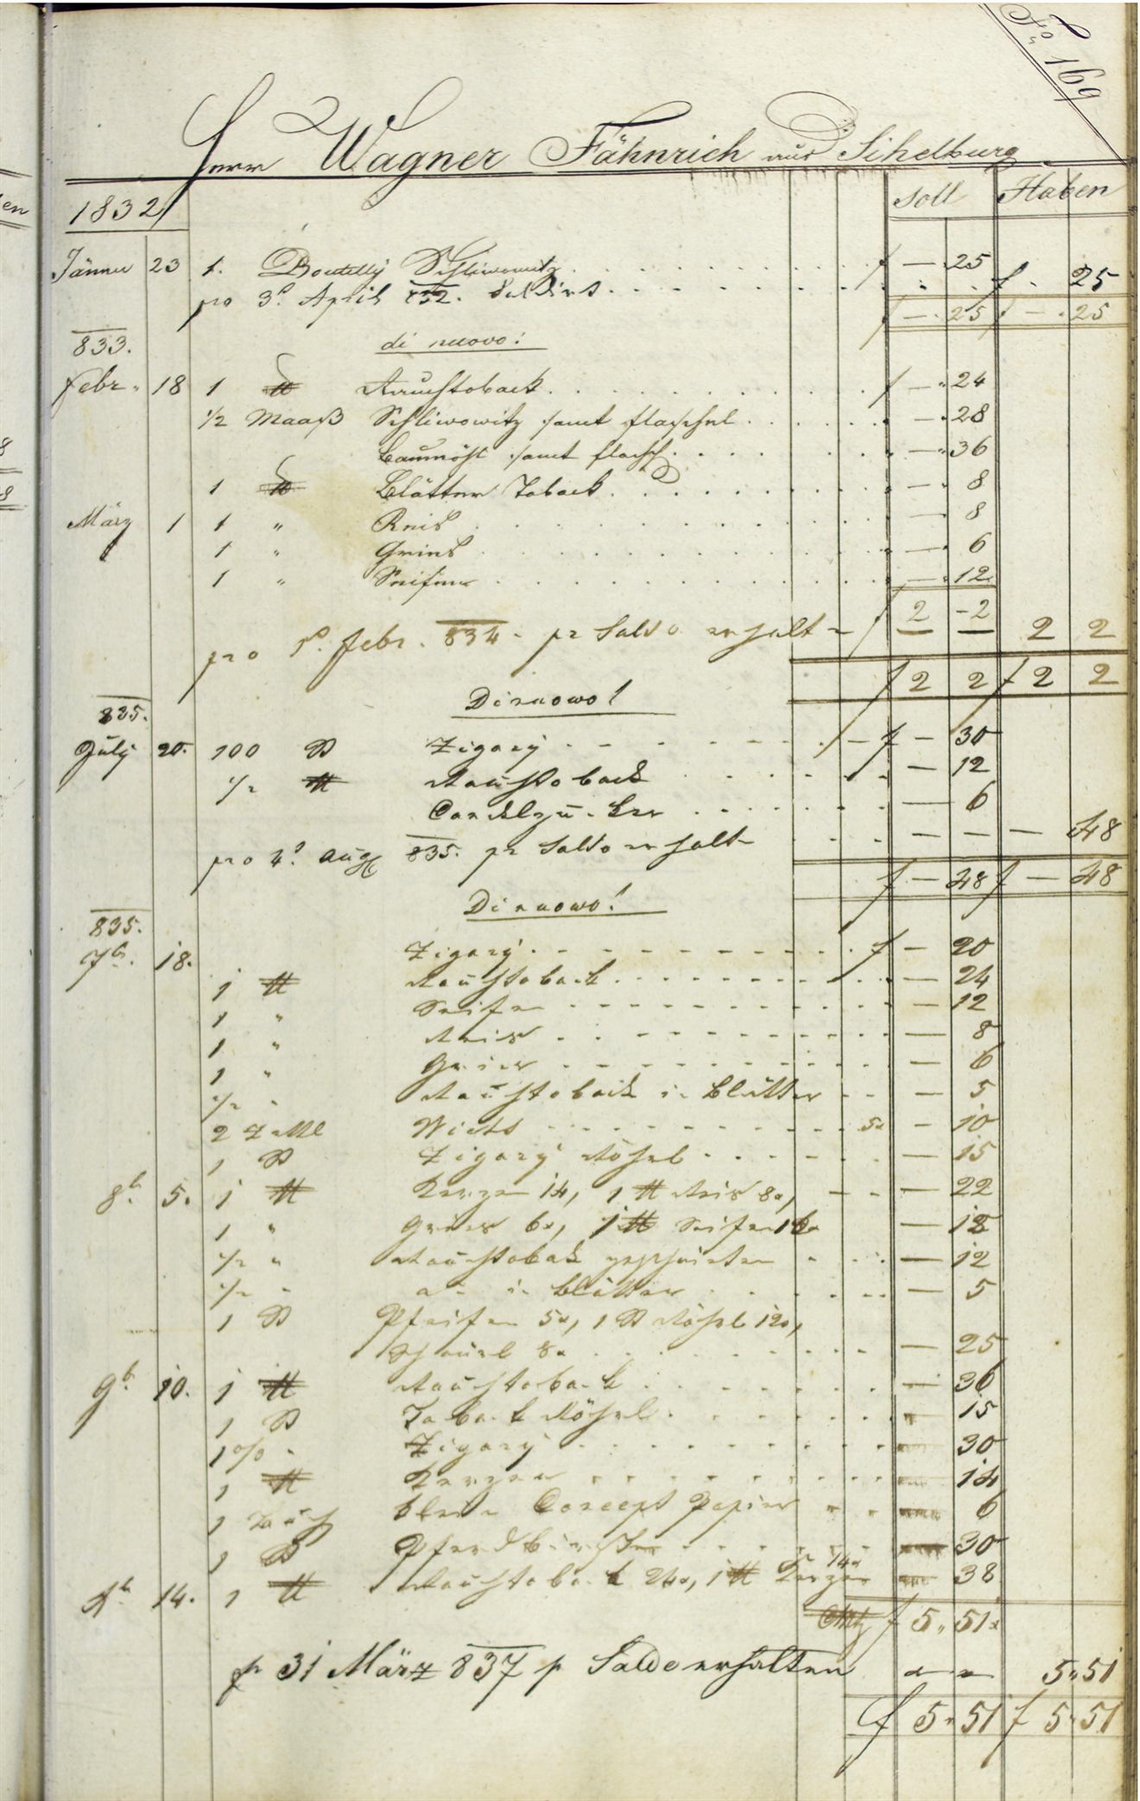 Fo 169
Herr Wagner Fähnrich aus Sichelburg
Soll Haben
1832
Jänner 23 1. Boutelly Schliwowitz f — 25
pro 3t April 832. Saldirt f . 25
f — 25 f — 25
833.
di nuovo!
Febr. 18 1 ℔ Rauchtoback f — 24
1/2 Maaß Schliwowitz samt flaschel — 28
Baumöhl samt flasch — 36
1 ℔ Blätter Toback — 8
März 1 1 " Reis — 8
1 " Gries — 6
1 " Seifen — 12
f 2 - 2
pro 1t Febr. 834 pr Saldo erhalt 2 2
f 2 2 f 2 2
Di nuowo!
835.
July 20. 100 St Zigary f — 30
1/2 ℔ Rauchtoback — 12
— 6
pro 4t Aug 835. pr Saldo erhalt — — — 48
f — 48 f — 48
Di nuowo!
835.
7b. 18. Zigary f — 20
1 ℔ Rauchtoback — 24
1 " Seife — 12
1 " Reis — 8
1 " Gries — 6
1/2 " Rauchtoback in Blätter — 5
2 Zettl Wichs 5x — 10
1 St Zigary Röhrl — 15
8b. 5. 1 ℔ Kerzen 14, 1 ℔ Reis 8x, — 22
1 " Gries 6x, 1 ℔ Seifen 12x — 18
1/2 " Rauchtobak geschnitten — 12
1/2 " in Blätter — 5
1 St Pfeifen 5x, 1 St Röhrl 12x,
8x — 25
9b. 10. 1 ℔ Rauchtoback — 36
1 St Taback Röhrl — 15
1% " Zigary — 30
1 ℔ Kerzen — 14
1 Buch Concept Papier — 6
1 St Pferdbürsten — 30
Xb 14. 1 ℔ Rauchtoback 24x, 1 ℔ Kerzen 14x — 38
f 5 " 51x
pr 31 März 837 p Saldo erhalten 5 " 51
f 5 " 51 f 5 " 51